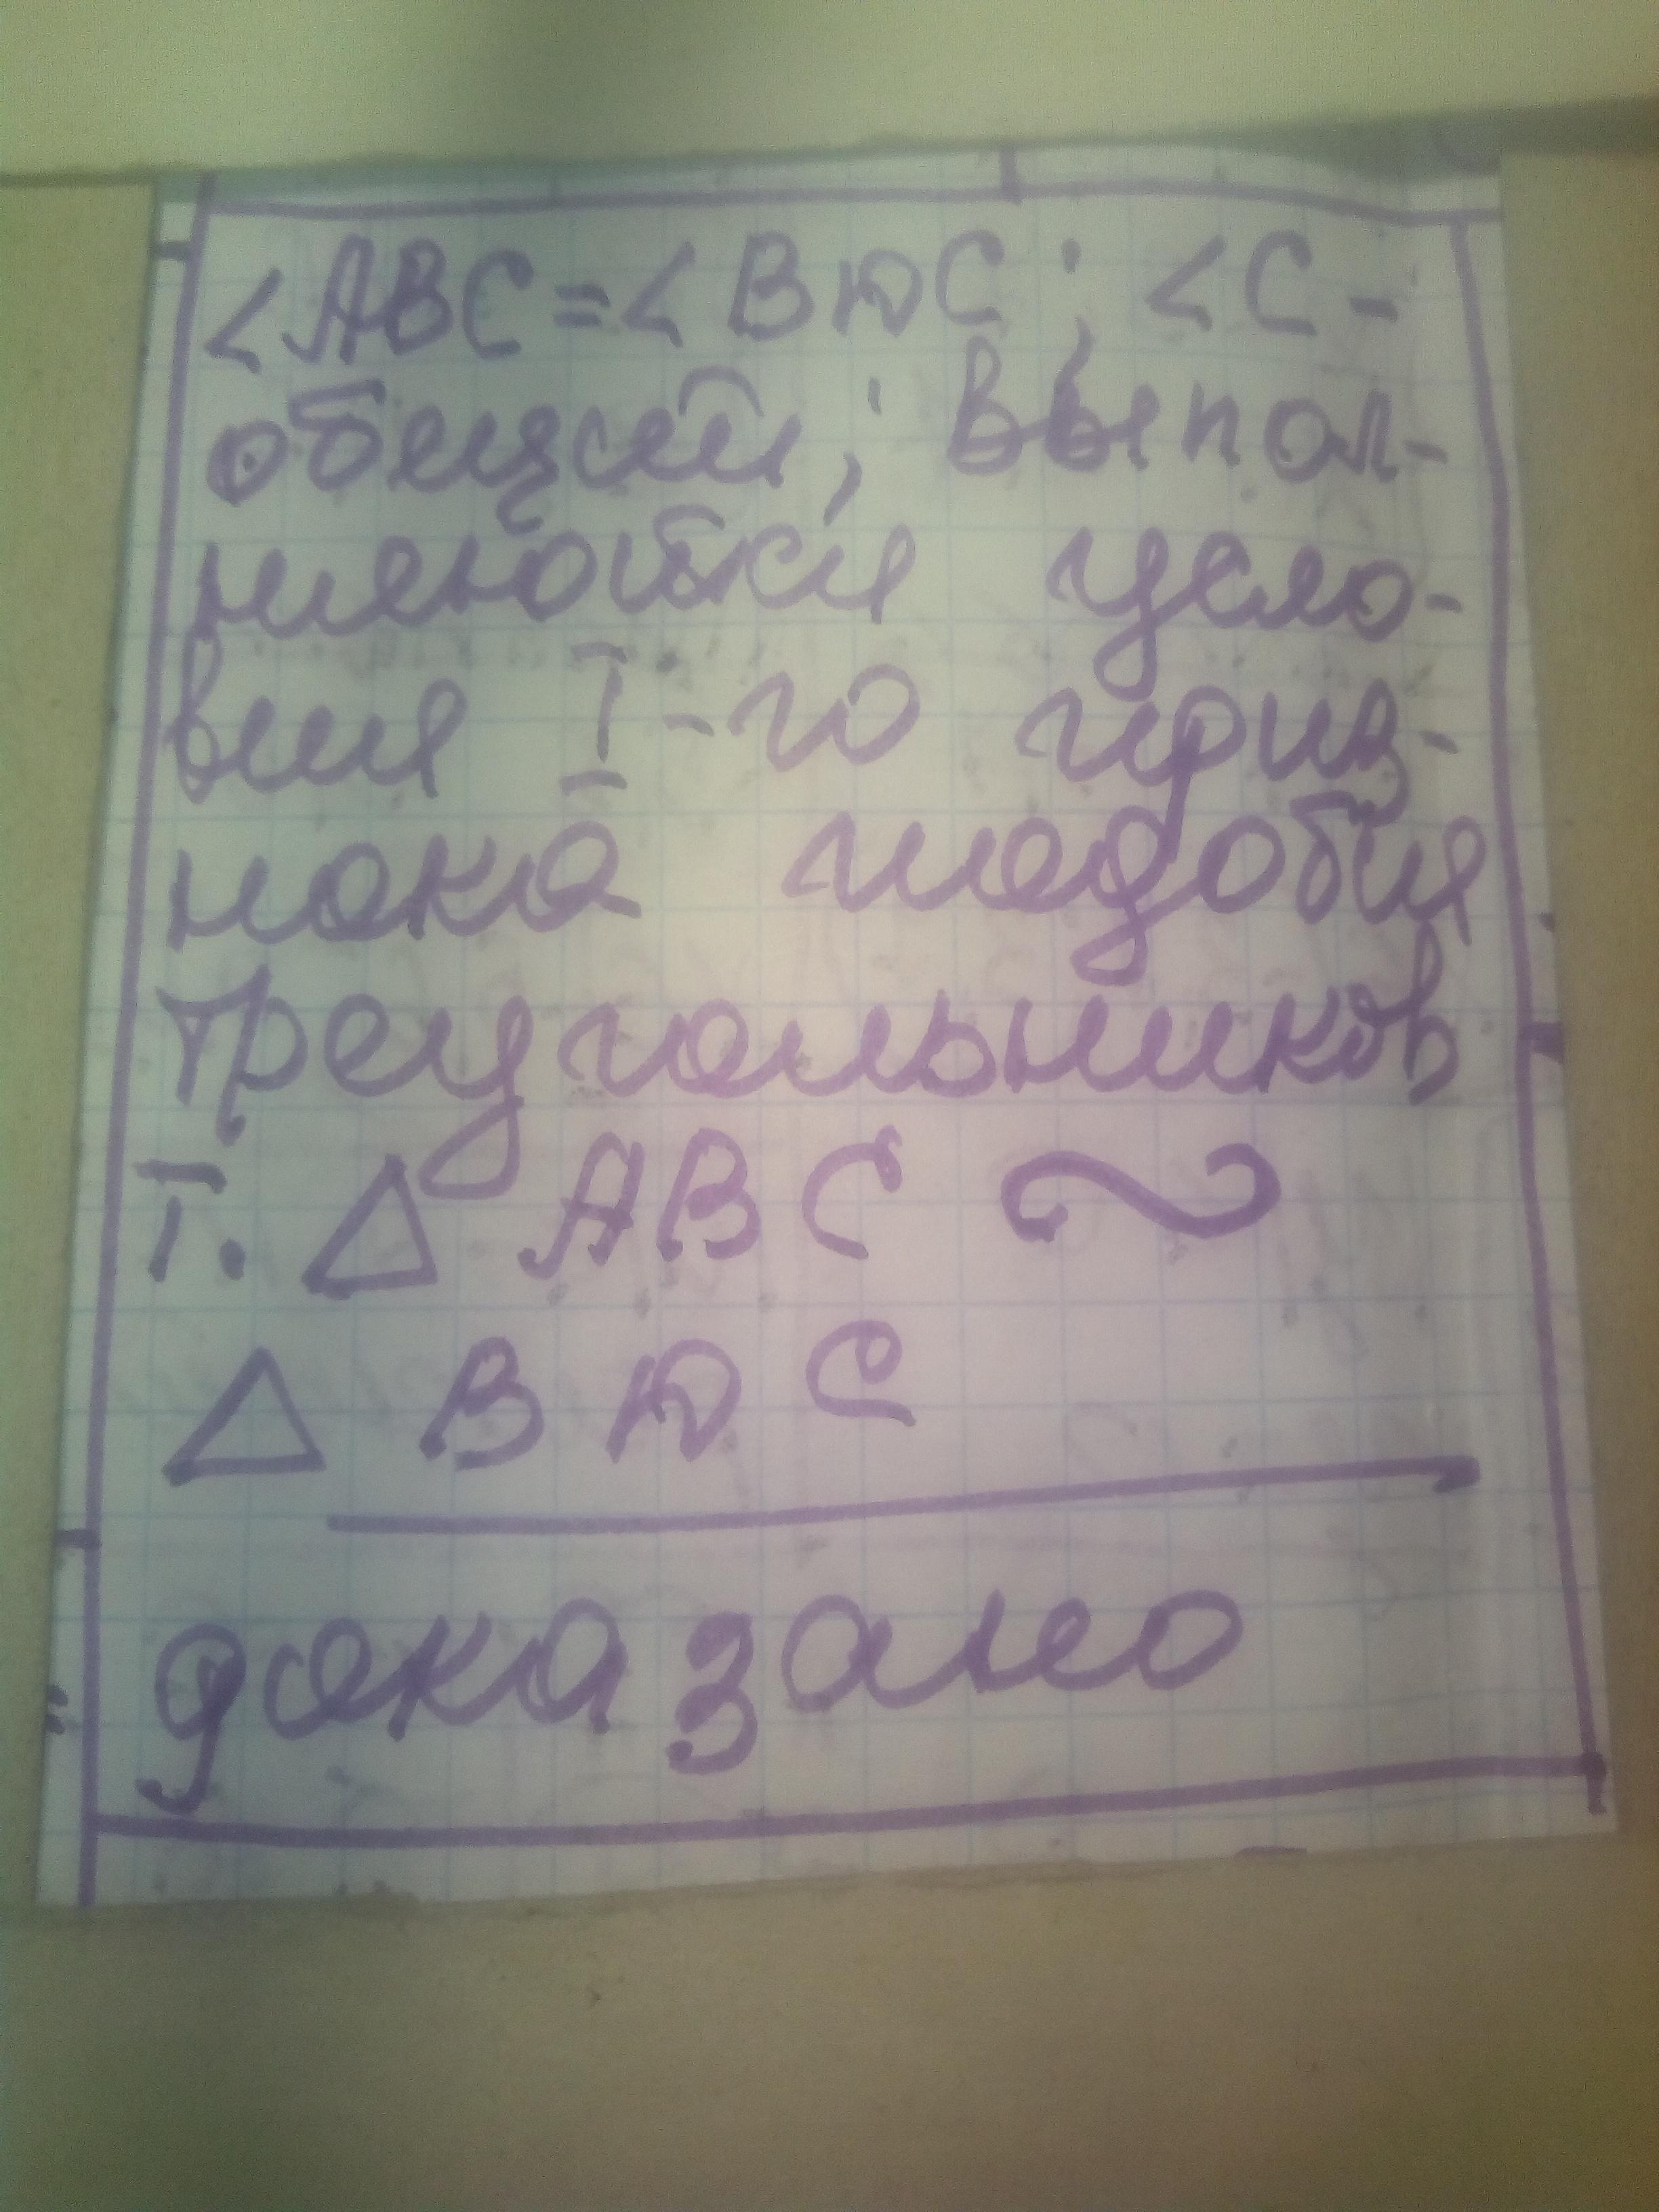 <ABC=<ВЮС; <С-
общий; выпол-
няются усло-
вия I-го приз-
нака подобия
треугольников
Т. △ АВС ~
△ ВЮС
доказано